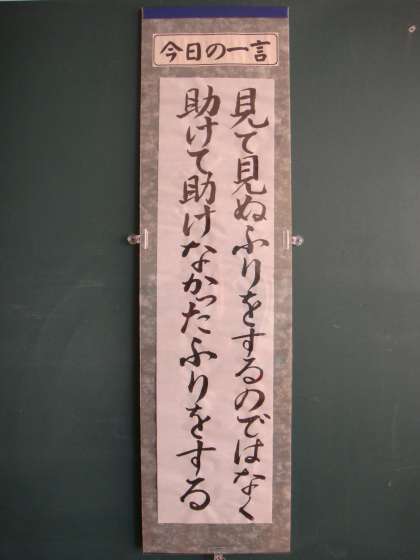 今日の一言
見て見ぬふりをするのではなく
助けて助けなかったふりをする